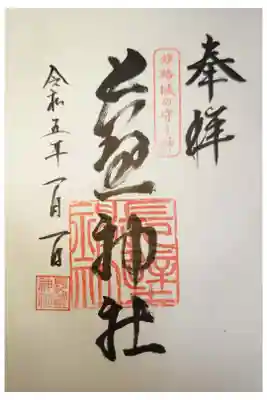 奉拝
姫路城の守り神
長壁神社
長壁神社
令和五年一月一日